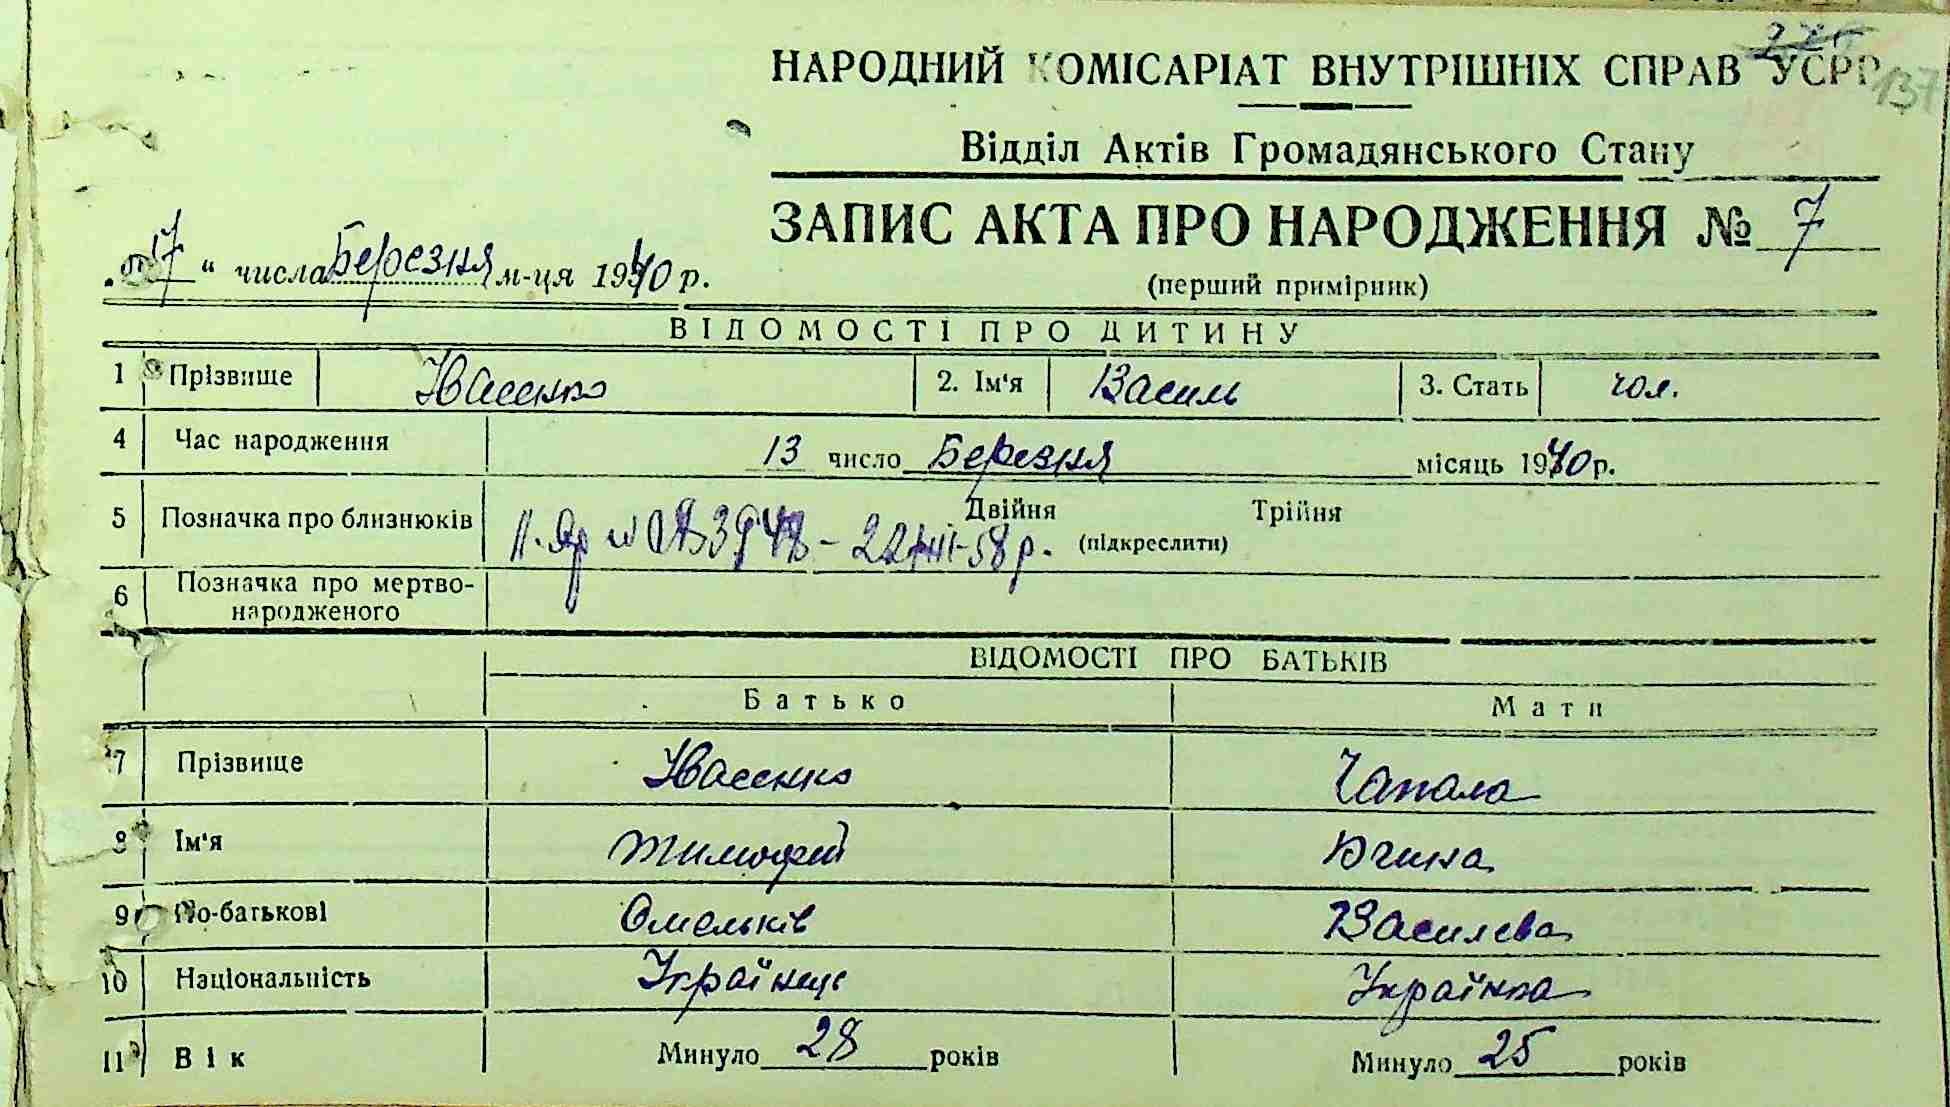 НАРОДНИЙ КОМІСАРІАТ ВНУТРІШНІХ СПРАВ УСРР
137
Відділ Актів Громадянського Стану
ЗАПИС АКТА ПРО НАРОДЖЕННЯ № 7
„17“ числа Березня м-ця 1940 р.
(перший примірник)
ВІДОМОСТІ ПРО ДИТИНУ
1 Прізвище Ивасенко 2. Ім'я Василь 3. Стать чол.
4 Час народження 13 число Березня місяць 1940 р.
5 Позначка про близнюків Двійня Трійня
58 р. (підкреслити)
6 Позначка про мертво-
народженого
ВІДОМОСТІ ПРО БАТЬКІВ
Батько Мати
7 Прізвище Ивасенко Чапала
8 Ім'я Тимофей
9 По-батькові Омельків Василева
10 Національність Українець Українка
11 Вік Минуло 28 років Минуло 25 років